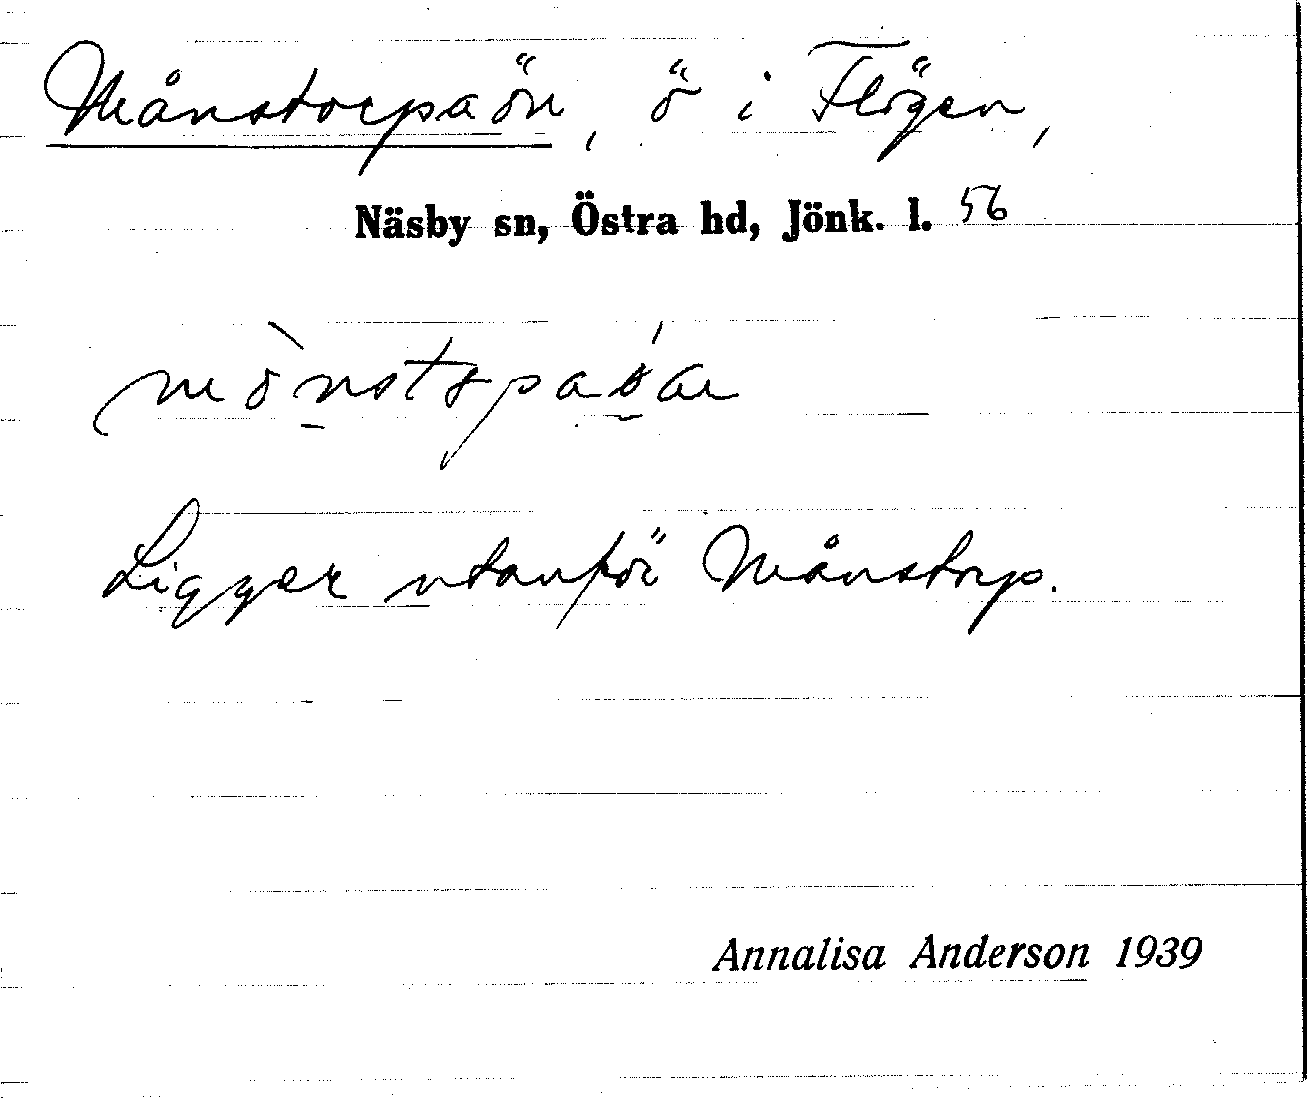 Månstorpaön, ö i Flögen,
Näsby sn, Östra hd, Jönk. l. 56
Ligger utanför Månstorp.
Annalisa Anderson 1939